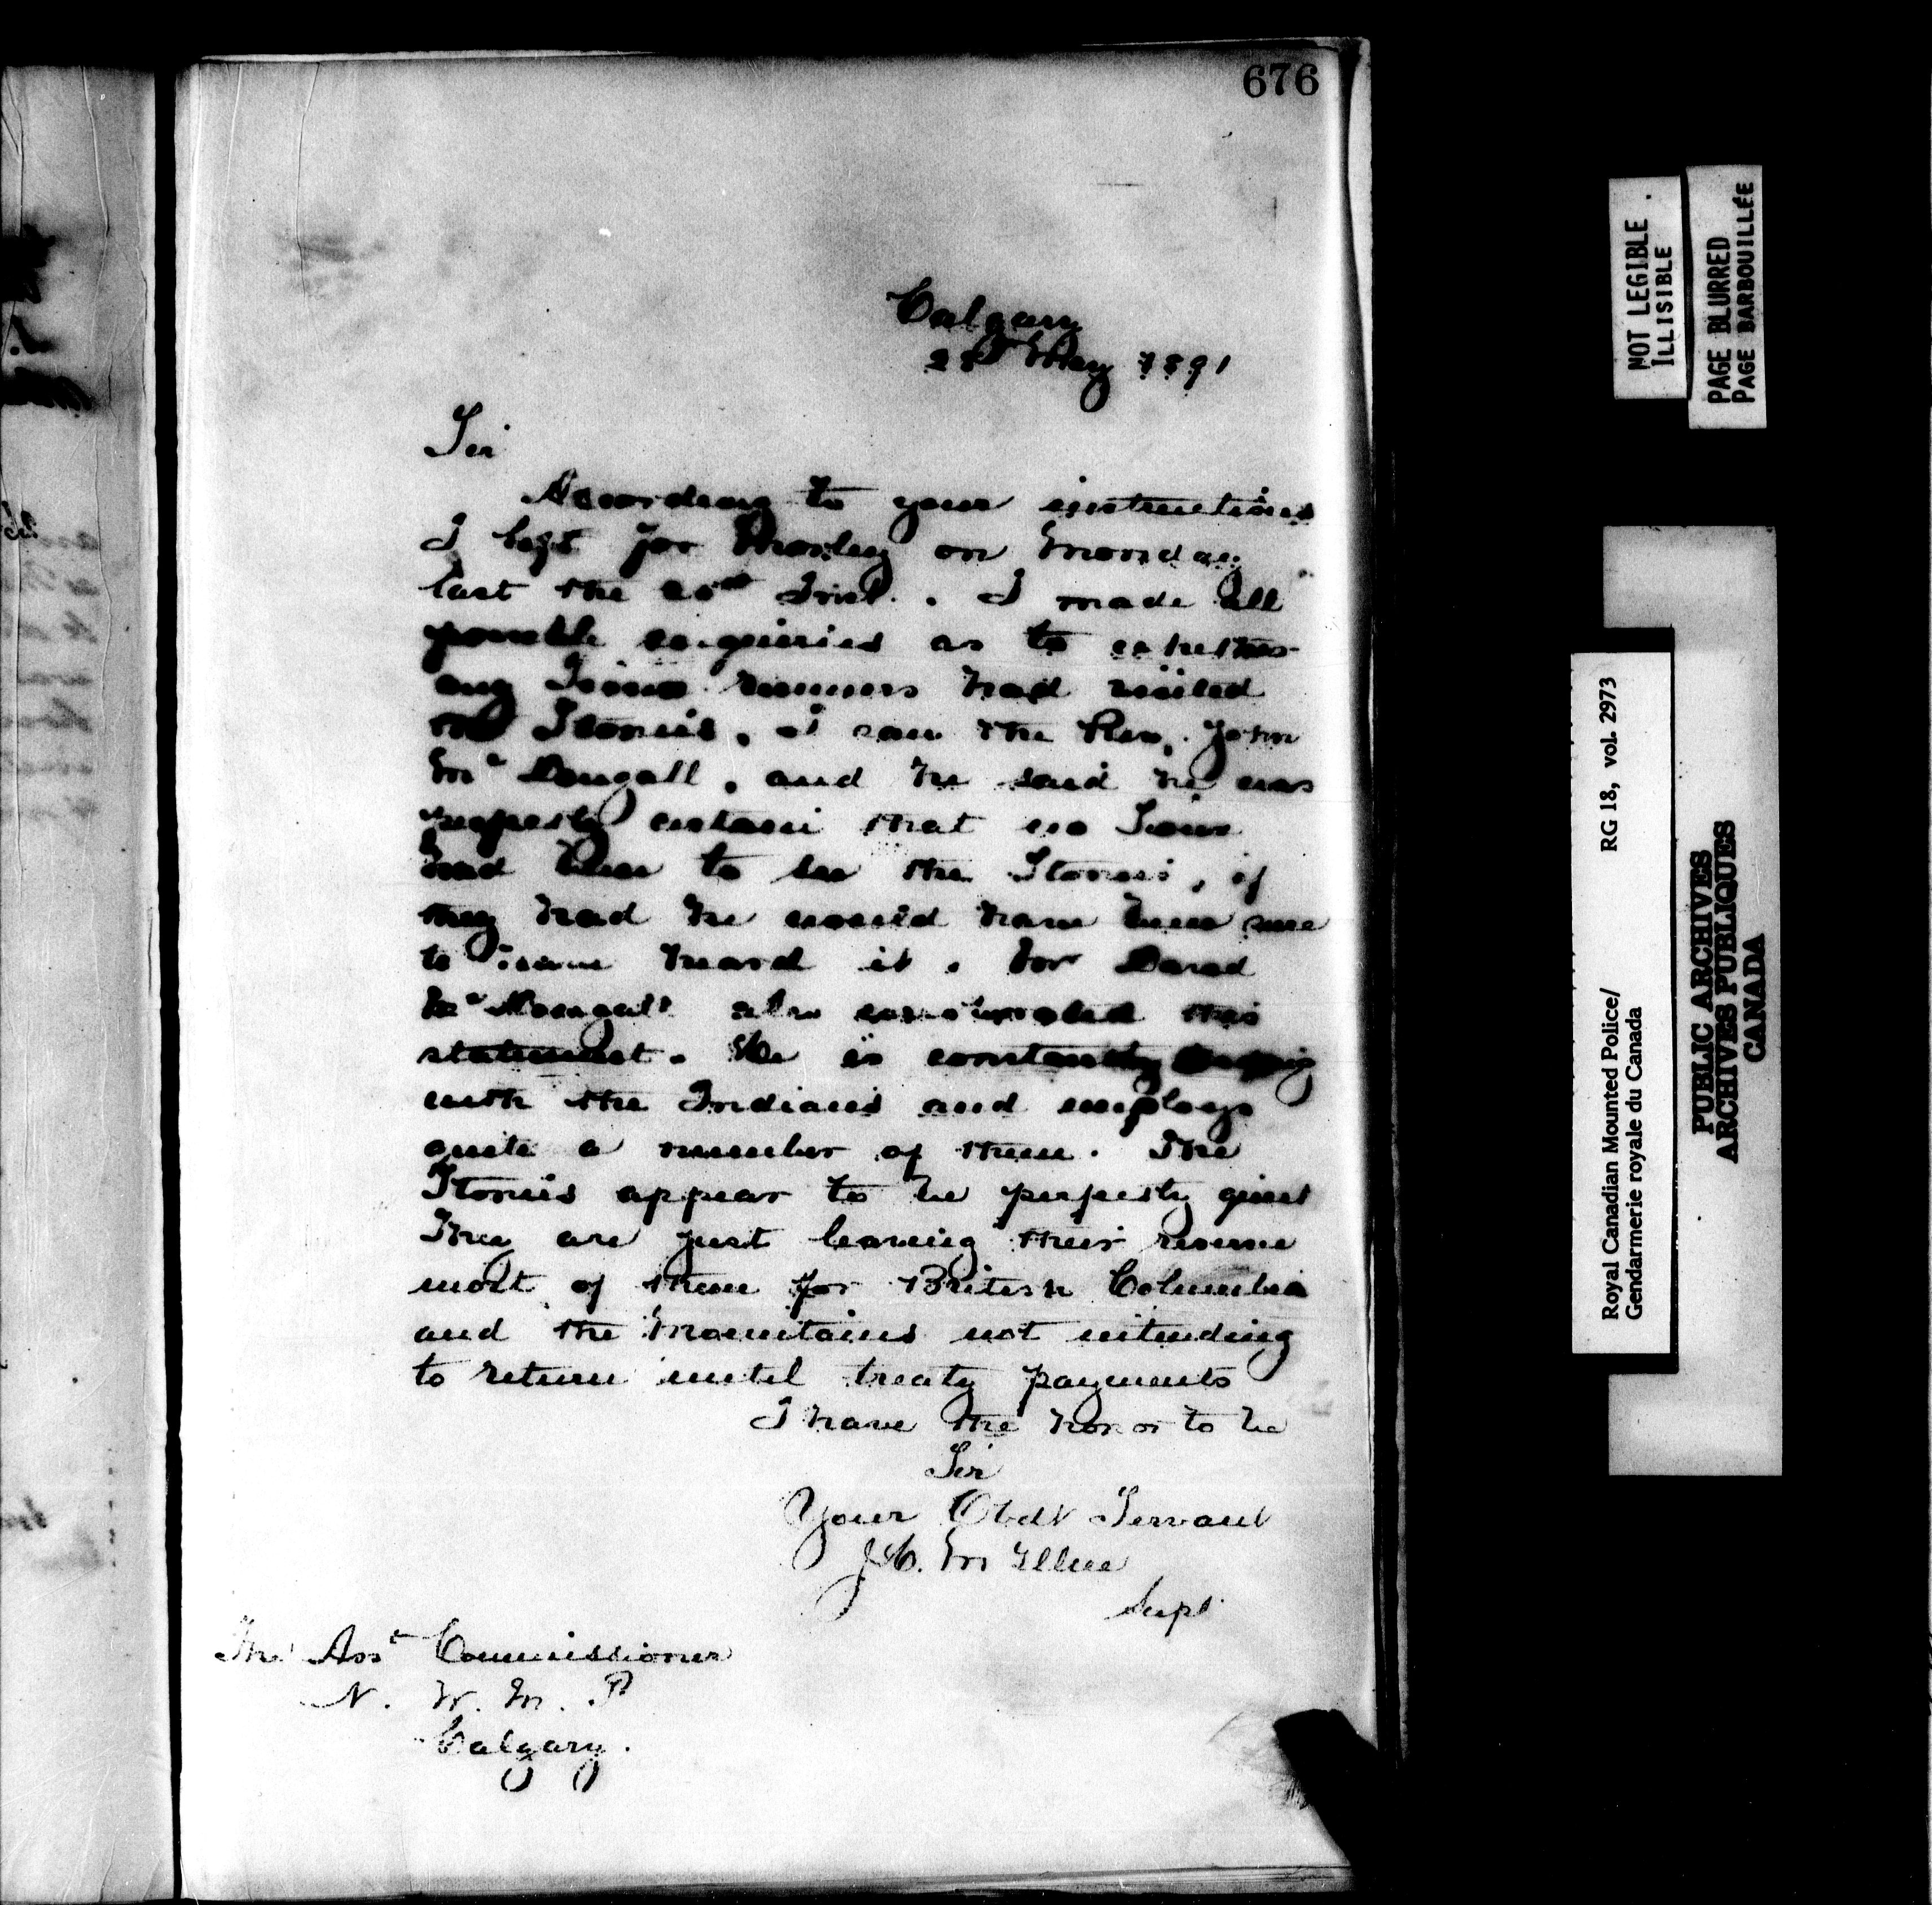 676
Calgary
May 1891
Sir
According to your instructions
I left for Morley on Monday
last the Inst. I made all
possible enquiries as to whether
any Sioux runners had visited
the Stonies. I saw the Rev. John
McDougall, and he said he was
perfectly certain that no Sioux
had been to see the Stonies, if
they had he would have been sure
to have heard it. David
McDougall also corroborated this
statement. He is constantly
with the Indians and employs
quite a number of them. The
Stonies appear to be perfectly quiet
They are just leaving their reserve
most of them for British Columbia
and the Mountains not intending
to return until treaty payments
I have the honor to be
Sir
Your Obdt Servant
Supt.
The Asst Commissioner
N. W. M. P
Calgary.
NOT LEGIBLE
ILLISIBLE
PAGE BLURRED
PAGE BARBOUILLÉE
Royal Canadian Mounted Police/ RG 18, vol. 2973
Gendarmerie royale du Canada
PUBLIC ARCHIVES
ARCHIVES PUBLIQUES
CANADA